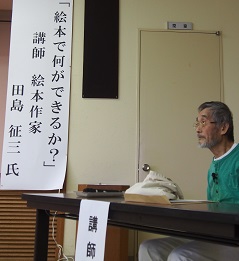 『絵本で何ができるか?』
講師 絵本作家
田島 征三 氏
講師